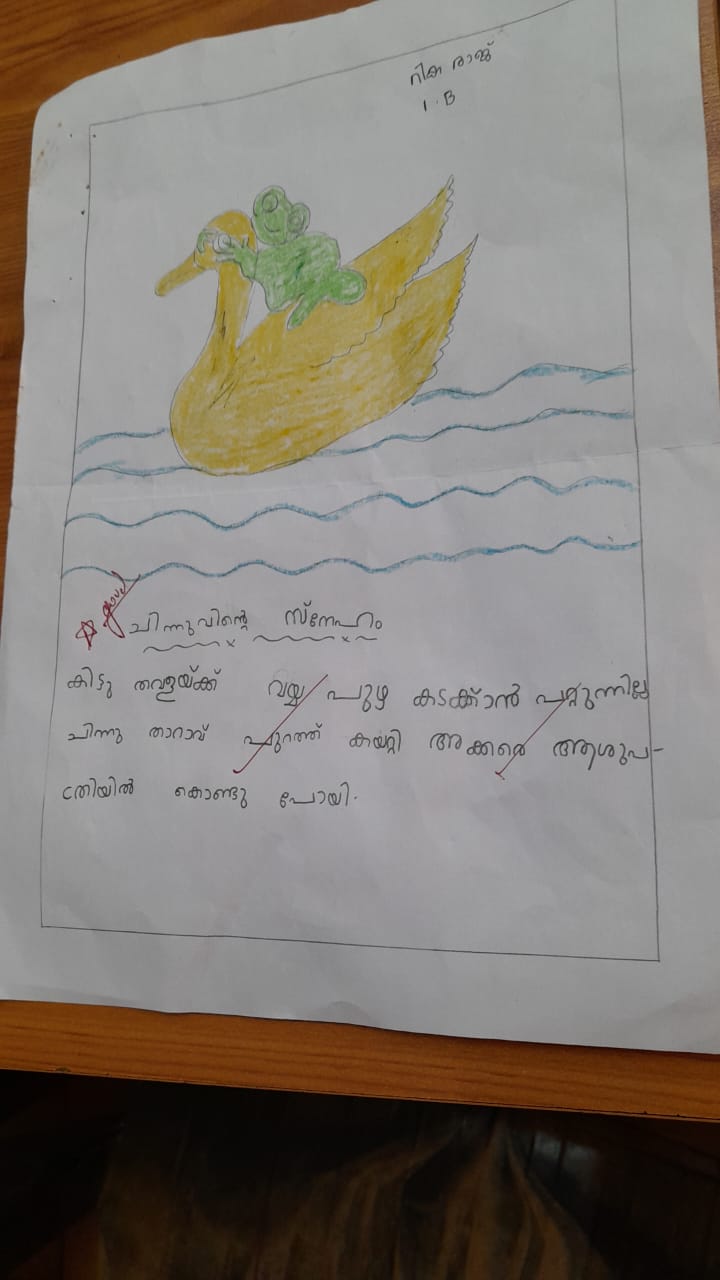 റിക രാജ്
1. B
ചിന്നുവിന്റെ സ്നേഹം
കിട്ടു തവളയ്ക്ക് വയ്യ പുഴ കടക്കാൻ പറ്റുന്നില്ല
ചിന്നു താറാവ് പുറത്ത് കയറ്റി അക്കരെ ആശുപ-
ത്രിയിൽ കൊണ്ടു പോയി.